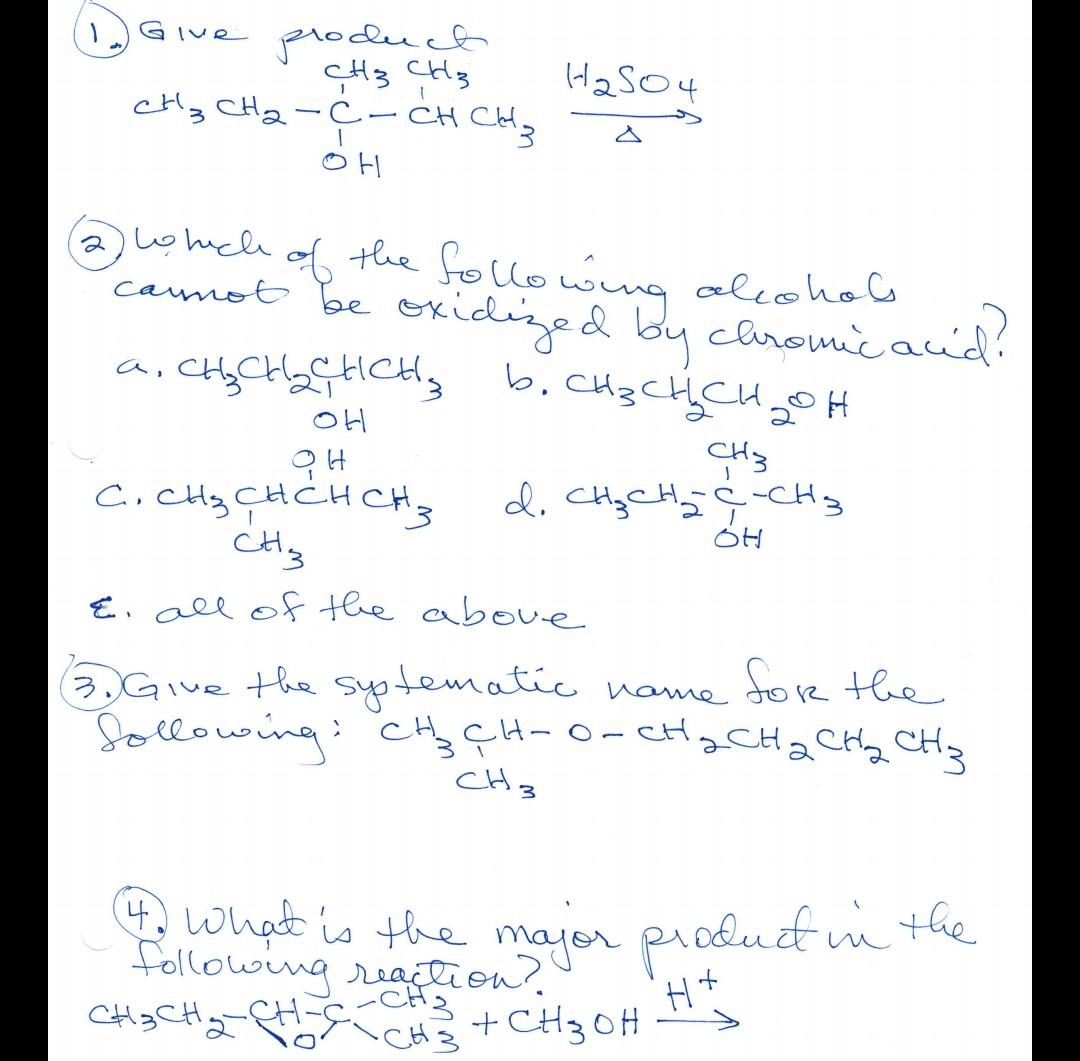 1. Give product
CH3 CH3
CH3 CH2 - C - CH CH3 H2SO4
Δ
OH
2 Which of the following alcohols
cannot be oxidized by chromic acid?
a. CH3CH2CHCH3 b. CH3CH2CH2OH
OH
OH CH3
C. CH3 CHCH CH3 d. CH3CH2-C-CH3
CH3 OH
E. all of the above
3. Give the systematic name for the
following: CH3 CH-O-CH2CH2CH2CH3
CH3
4. What is the major product in the
following reaction?
CH3CH2-CH-C-CH3 + CH3OH H+
O CH3